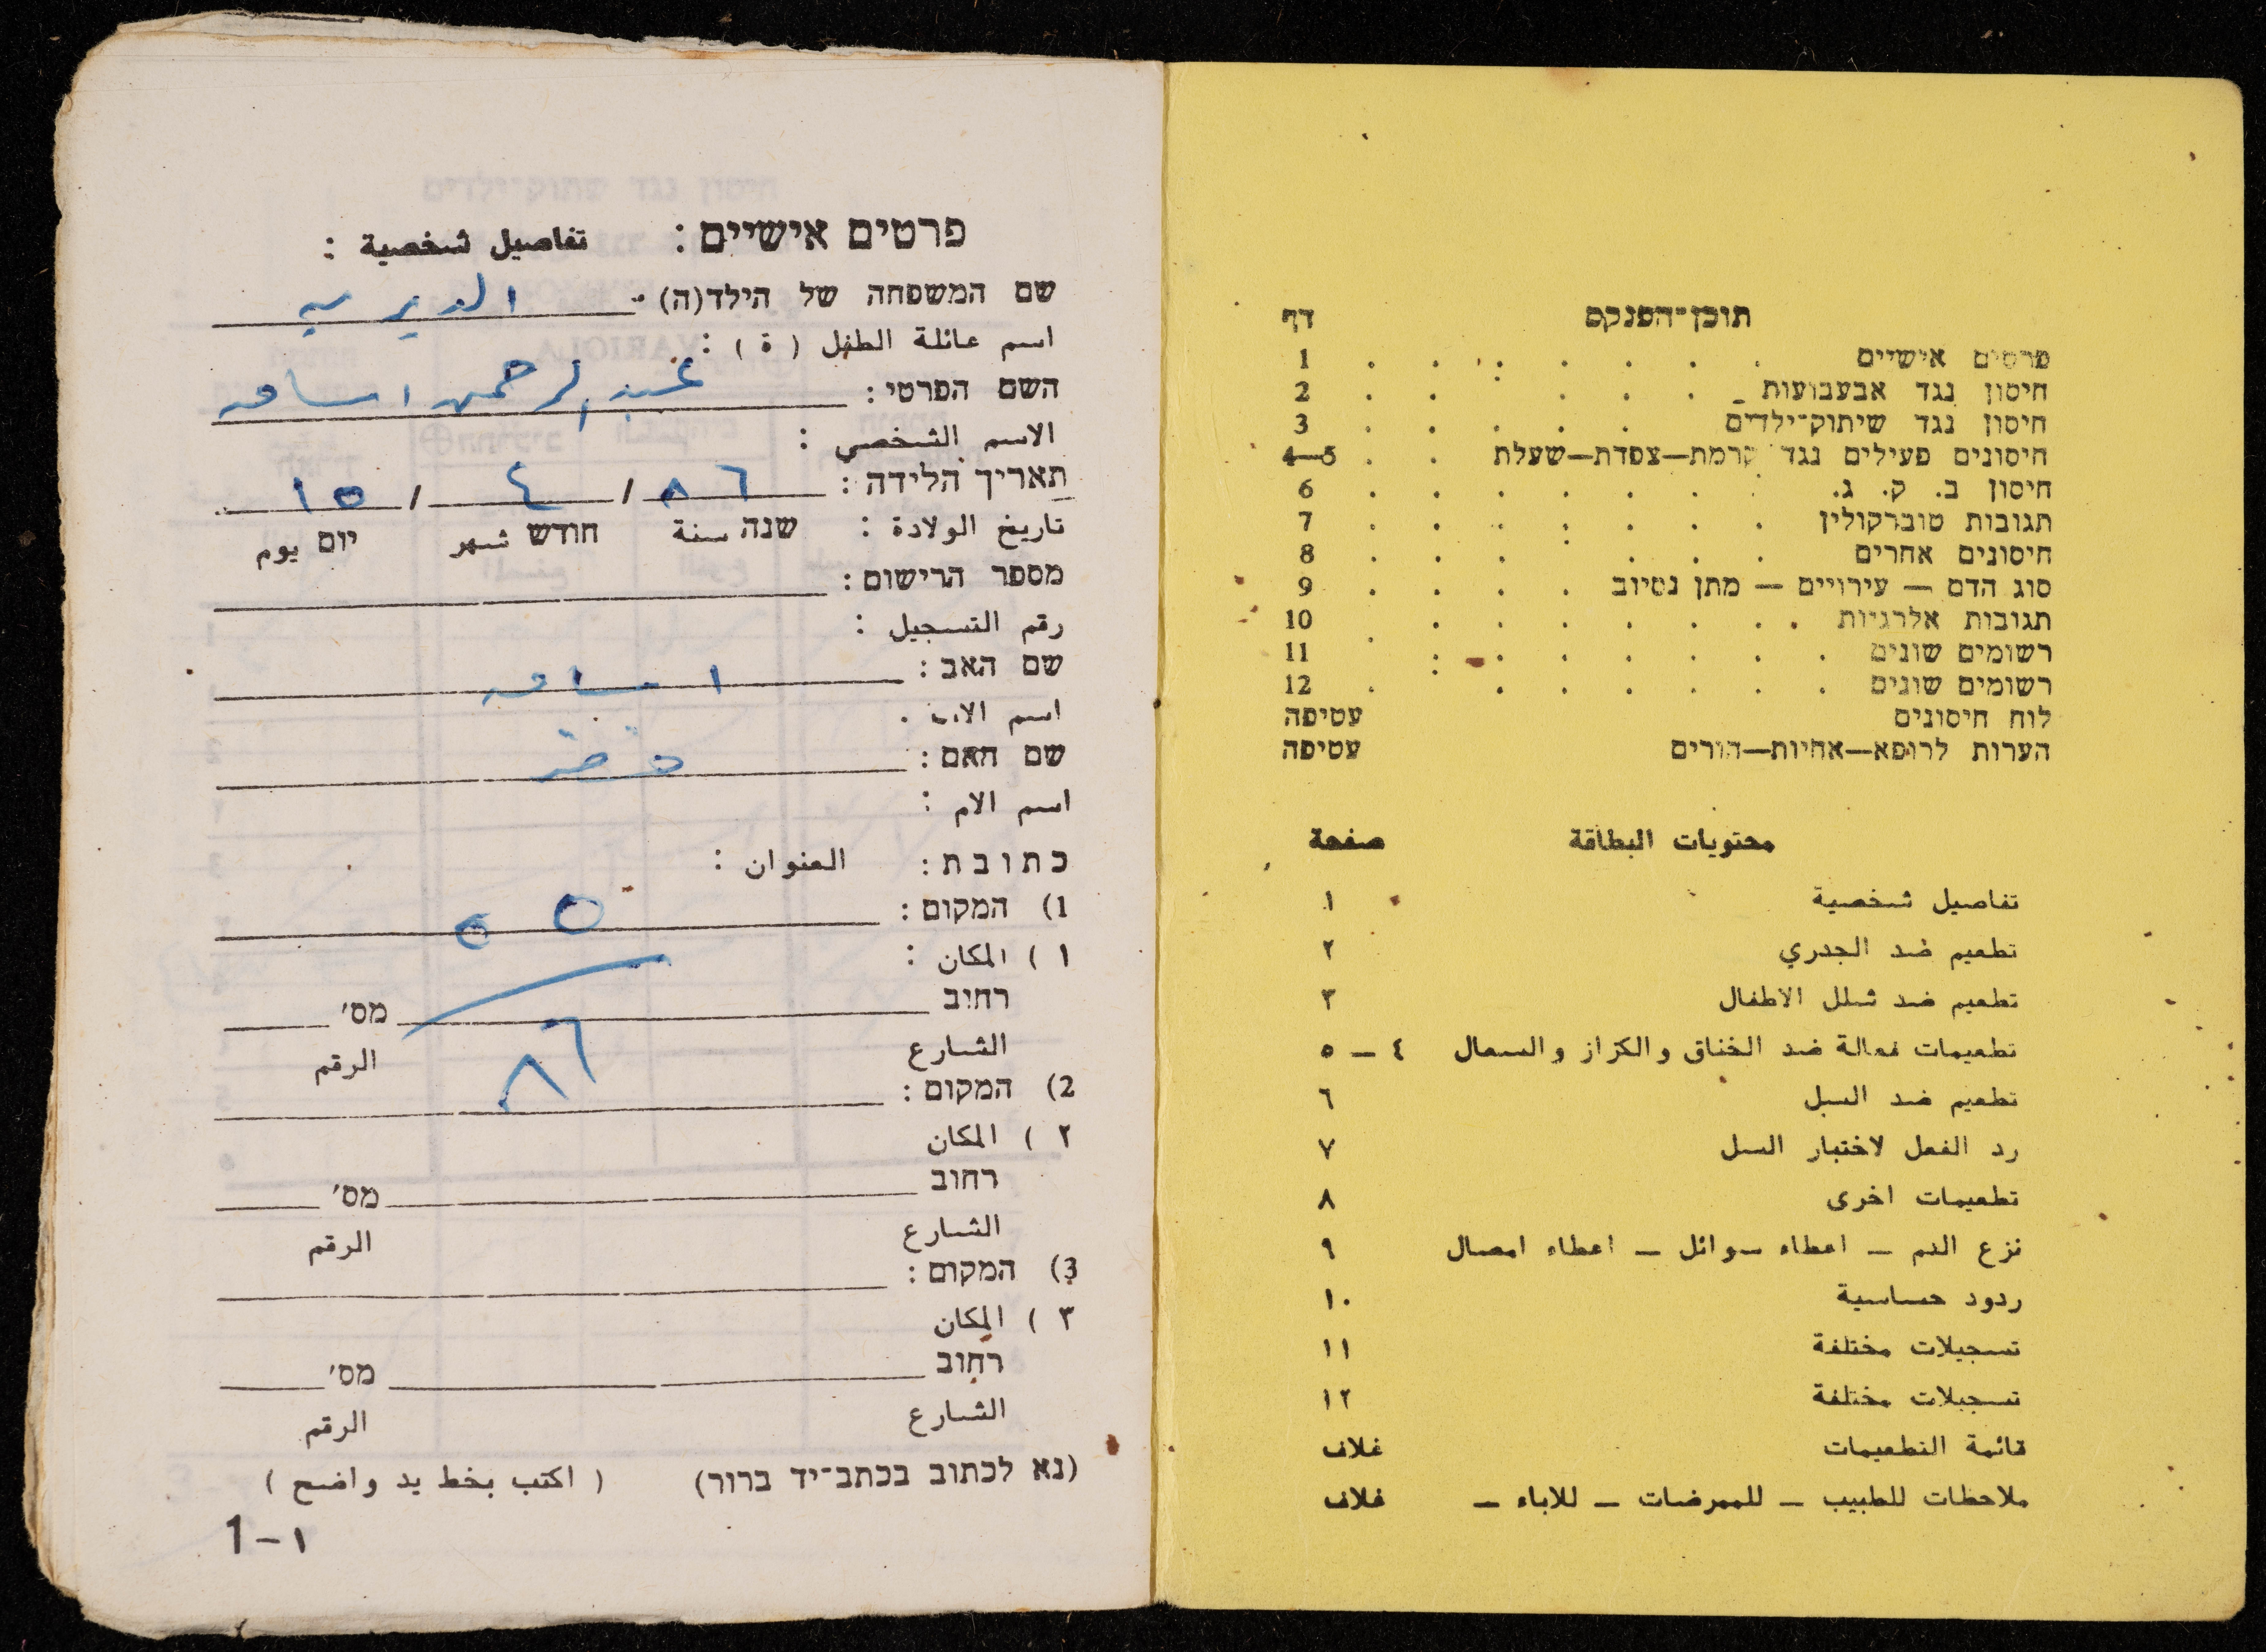 תוכן־הפנקס דף
פרטים אישיים . . . . . . . 1
חיסון נגד אבעבועות . . . . . 2
חיסון נגד שיתוק־ילדים . . . . . 3
חיסונים פעילים נגד קרמת—צפדת—שעלת . . 4—5
חיסון ב. ק. ג. . . . . . . . 6
תגובות טוברקולין . . . . . . . 7
חיסונים אחרים . . . . . . . 8
סוג הדם — עירויים — מתן נסיוב . . . . 9
תגובות אלרגיות . . . . . . . 10
רשומים שונים . . . . . . . 11
רשומים שונים . . . . . . . 12
לוח חיסונים עטיפה
הערות לרופא—אחיות—הורים עטיפה
محتويات البطاقة صفحة
تفاصيل شخصية ١
تطعيم ضد الجدري ٢
تطعيم ضد شلل الاطفال ٣
تطعيمات فعالة ضد الخناق والكزاز والسعال ٤ — ٥
تطعيم ضد السل ٦
رد الفعل لاختبار السل ٧
تطعيمات اخرى ٨
نزع الدم — اعطاء سوائل — اعطاء امصال ٩
ردود حساسية ١٠
تسجيلات مختلفة ١١
تسجيلات مختلفة ١٢
قائمة التطعيمات غلاف
ملاحظات للطبيب — للممرضات — للاباء — غلاف
פרטים אישיים : تفاصيل شخصية :
שם המשפחה של הילד(ה)
اسم عائلة الطفل ( ة ) :
השם הפרטי : عبد الرحمن اسامه
الاسم الشخصي :
תאריך הלידה : ٨٦ / ٤ / ١٥
تاريخ الولادة : שנה سنة חודש شهر יום يوم
מספר הרישום :
رقم التسجيل :
שם האב : اسامه
اسم الاب :
שם האם :
اسم الام :
כתובת : العنوان :
1) המקום :
١ ) المكان :
רחוב מס׳
الشارع الرقم
٨٦
2) המקום :
٢ ) المكان
רחוב מס׳
الشارع الرقم
3) המקום :
٣ ) المكان
רחוב מס׳
الشارع الرقم
(נא לכתוב בכתב־יד ברור) ( اكتب بخط يد واضح )
1-١